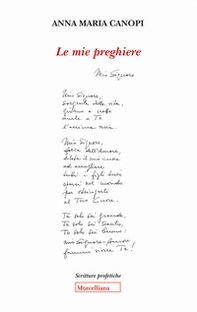 ANNA MARIA CANOPI
Le mie preghiere
Mio Signore
Mio Signore,
sorgente della vita,
giorno e notte
anela a Te
l'anima mia.
Mio Signore,
forza dell'Amore,
dilata il mio cuore
ad accogliere
tutti i figli tuoi
spersi nel mondo
per stringerli
al Tuo Cuore.
Tu solo sei grande,
Tu solo sei Santo,
Tu solo sei buono:
mio Signore Amore
fammi vivere Te!
Scritture profetiche
Morcelliana